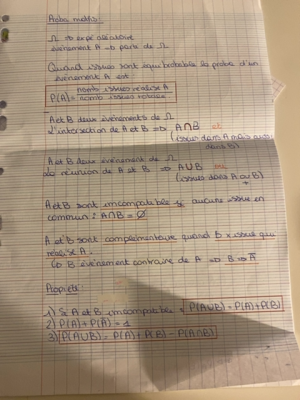 Probas
Ω ⇒ expé aléatoire
évènement A → partie de Ω
Quand issues sont équiprobable la proba d'un
évènement A est
P(A) = nomb issues réalise A / nomb issues totales
A et B deux évènements de Ω
L'intersection de A et B ⇒ A∩B et
(issues dans A mais aussi
dans B)
A et B deux évènement de Ω
la réunion de A et B ⇒ A∪B ou
(issues dans A ou B)
A et B sont incompatible si aucune issue en
commun : A∩B = Ø
A et B sont complémentaire quand B issues qui
réalise A
B évènement contraire de A ⇒ B = A̅
Propriété
1) Si A et B incompatible P(A∪B) = P(A) + P(B)
2) P(A) + P(A̅) = 1
3) P(A∪B) = P(A) + P(B) - P(A∩B)